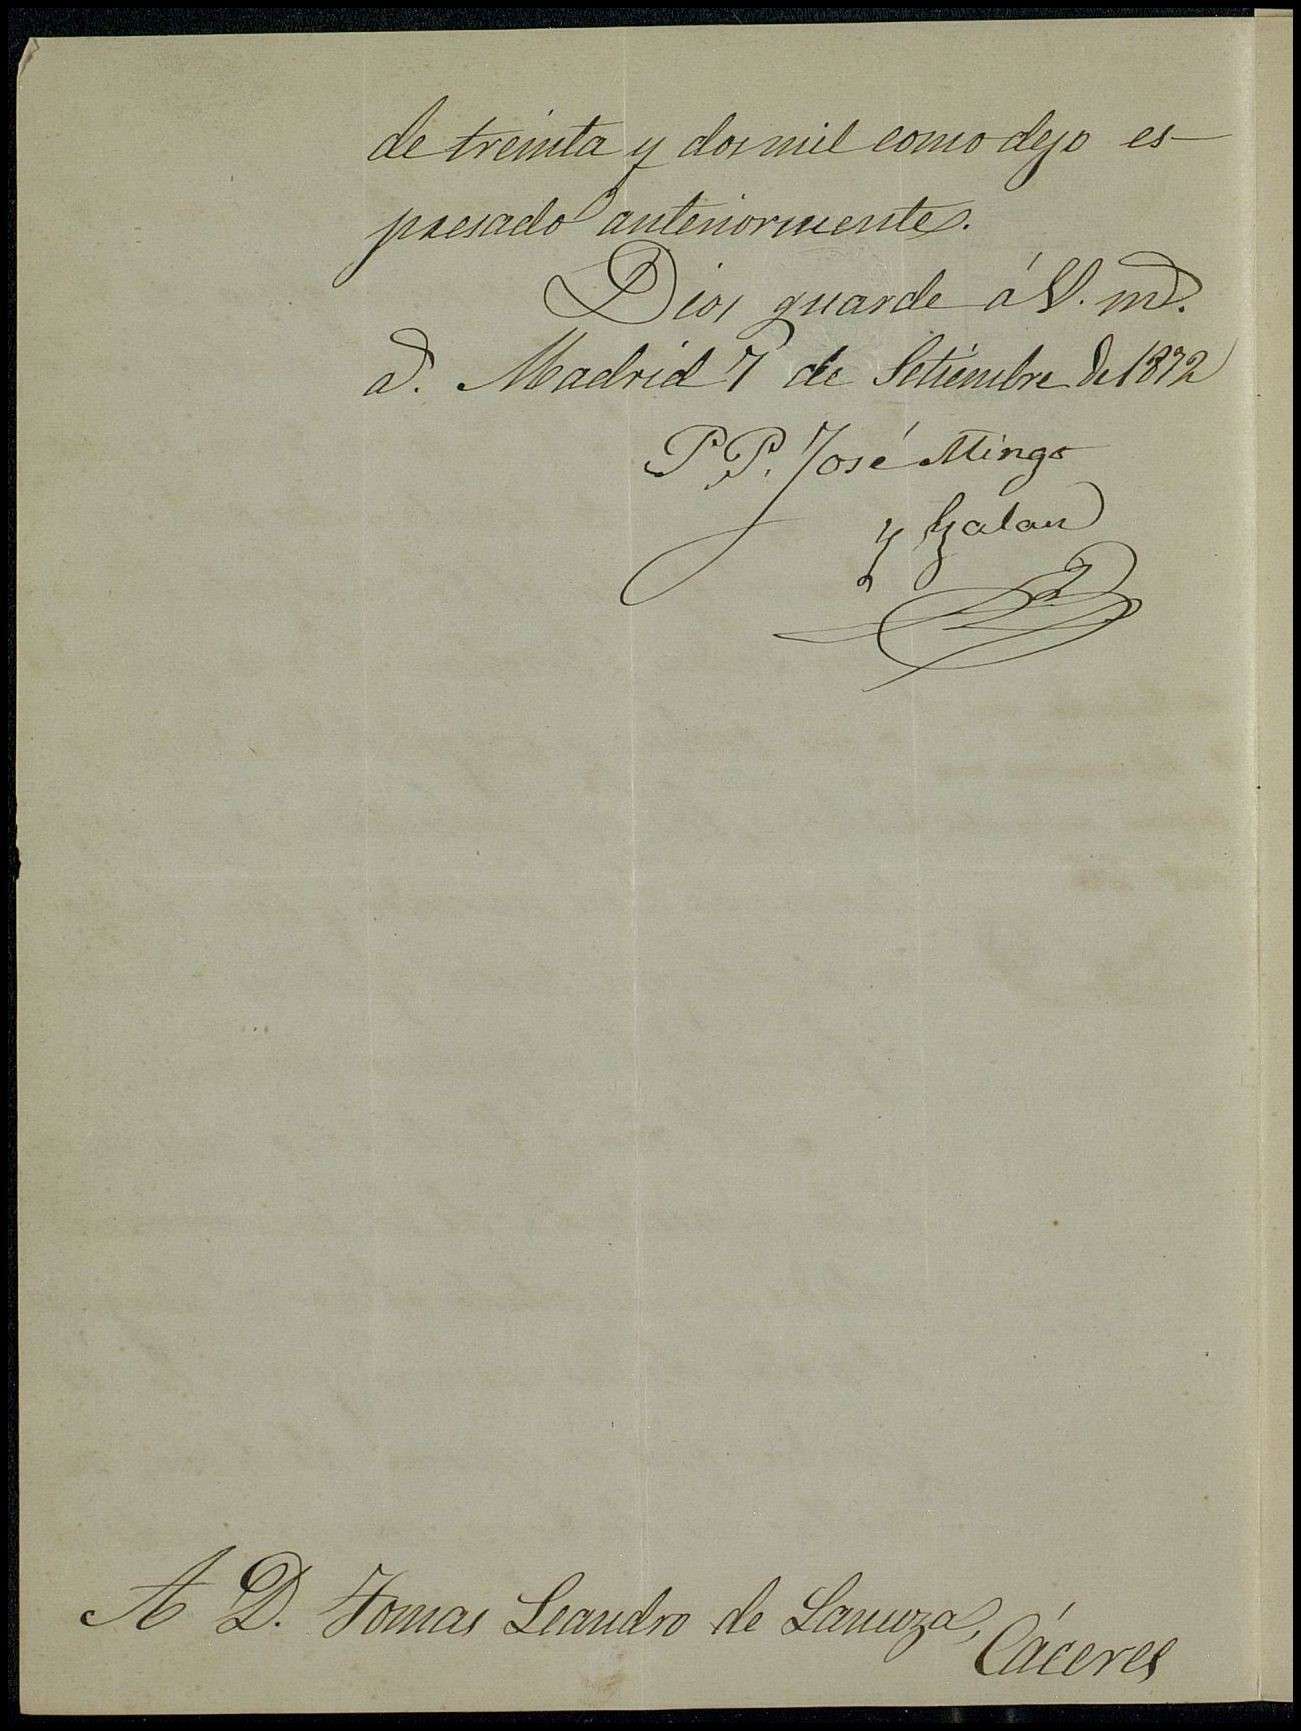 de treinta y dos mil como dejo es-
presado anteriormente.
Dios guarde á V. m.ˢ
a.ˢ Madrid 7 de Setiembre de 1872
P. P. José Mingo
y Galan
A D. Tomas Leandro de Lanuza,
Cáceres